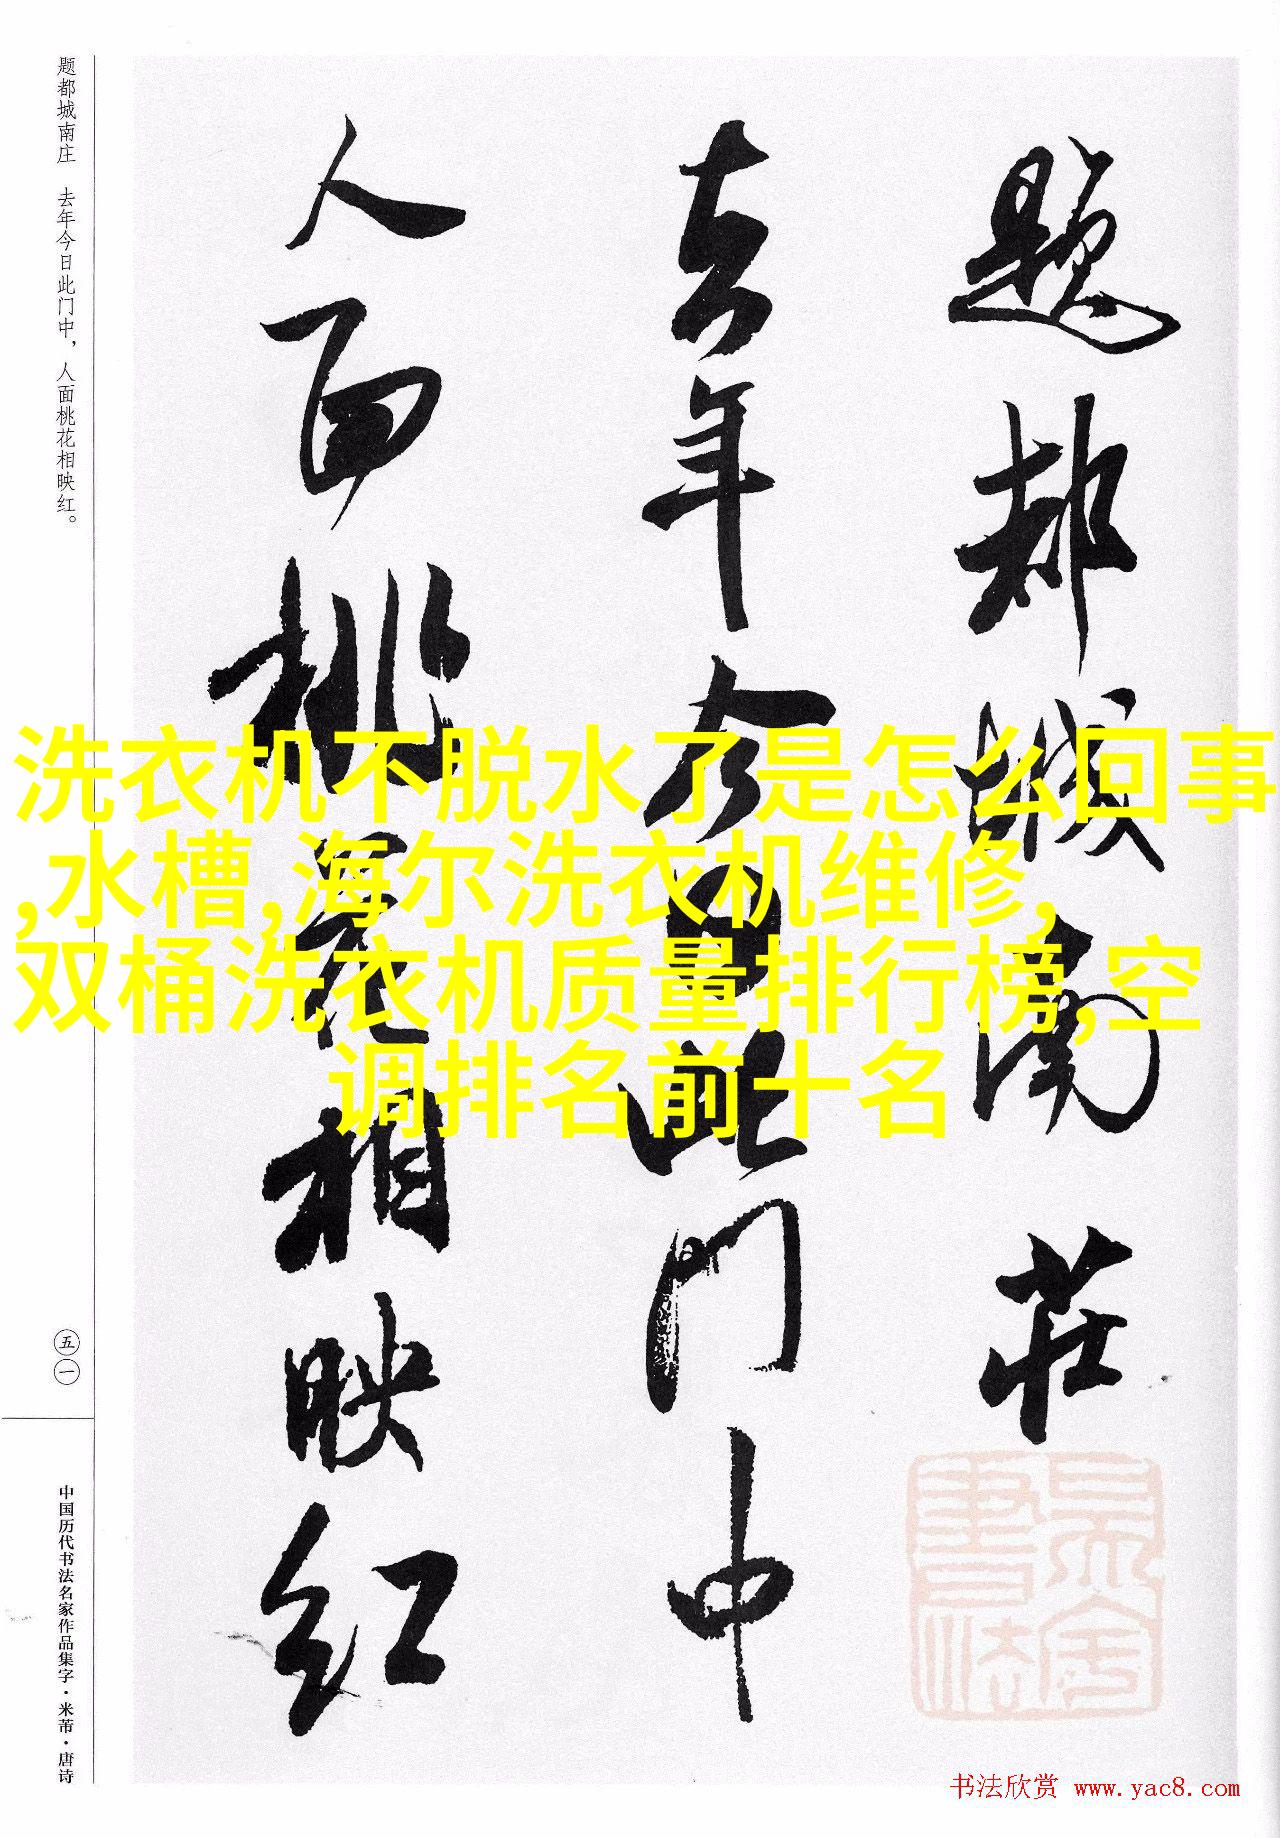 題都城南莊
去年今日此門中
人面桃花相映紅
题都城南庄　去年今日此门中，人面桃花相映红。
五一
中国历代书法名家作品集字·米芾·唐诗
洗衣机不脱水了是怎么回事
,水槽,海尔洗衣机维修,
双桶洗衣机质量排行榜,空
调排名前十名
书法欣赏 www.yac8.com